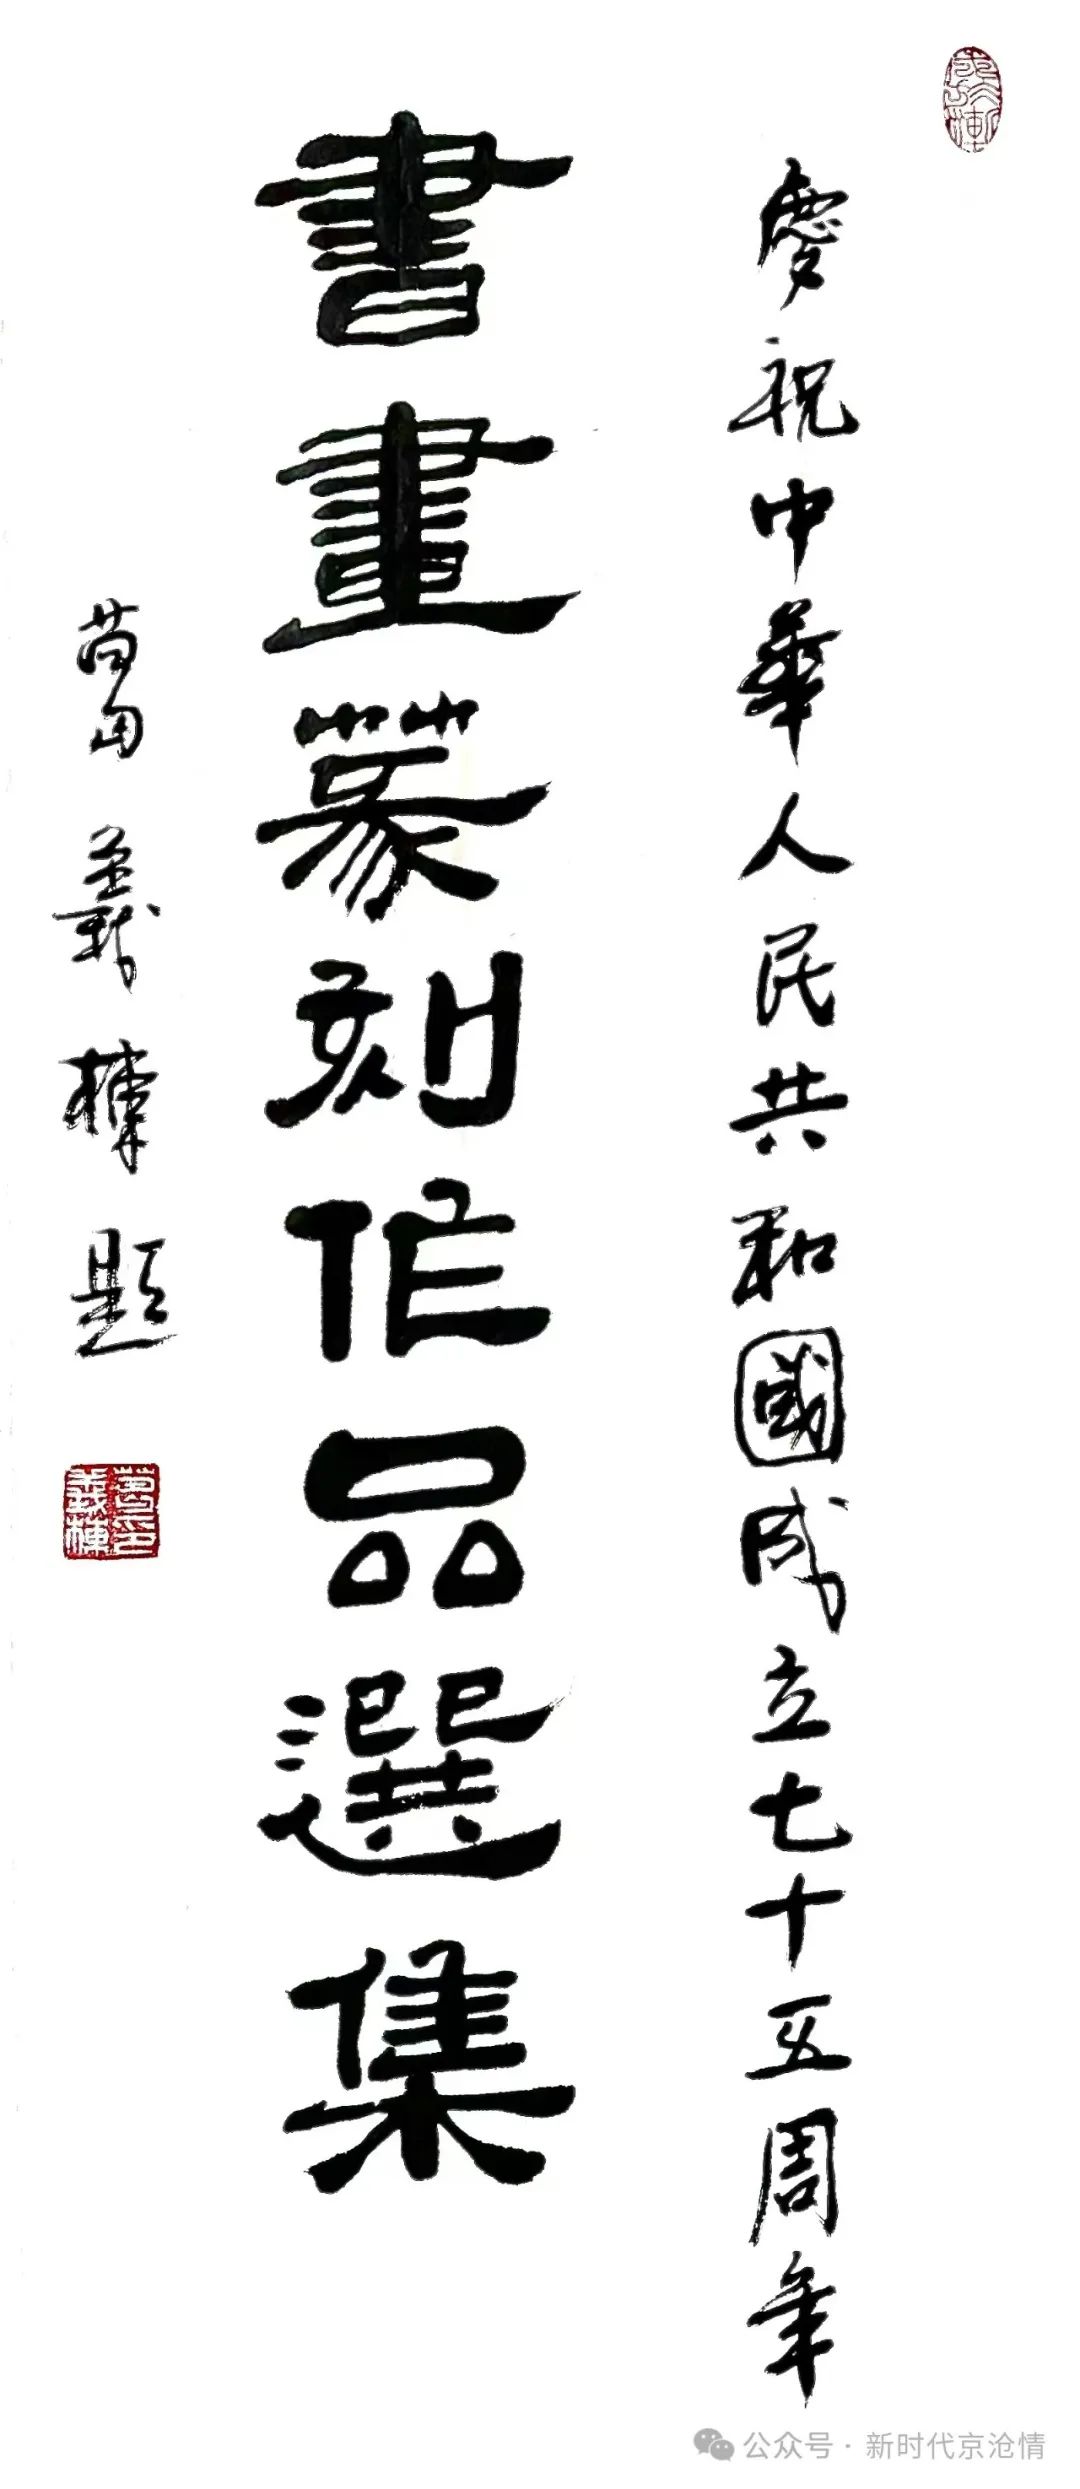 慶祝中華人民共和國成立七十五周年
書畫篆刻作品選集
葛義棟題
葛印義棟
公众号·新时代京沧情